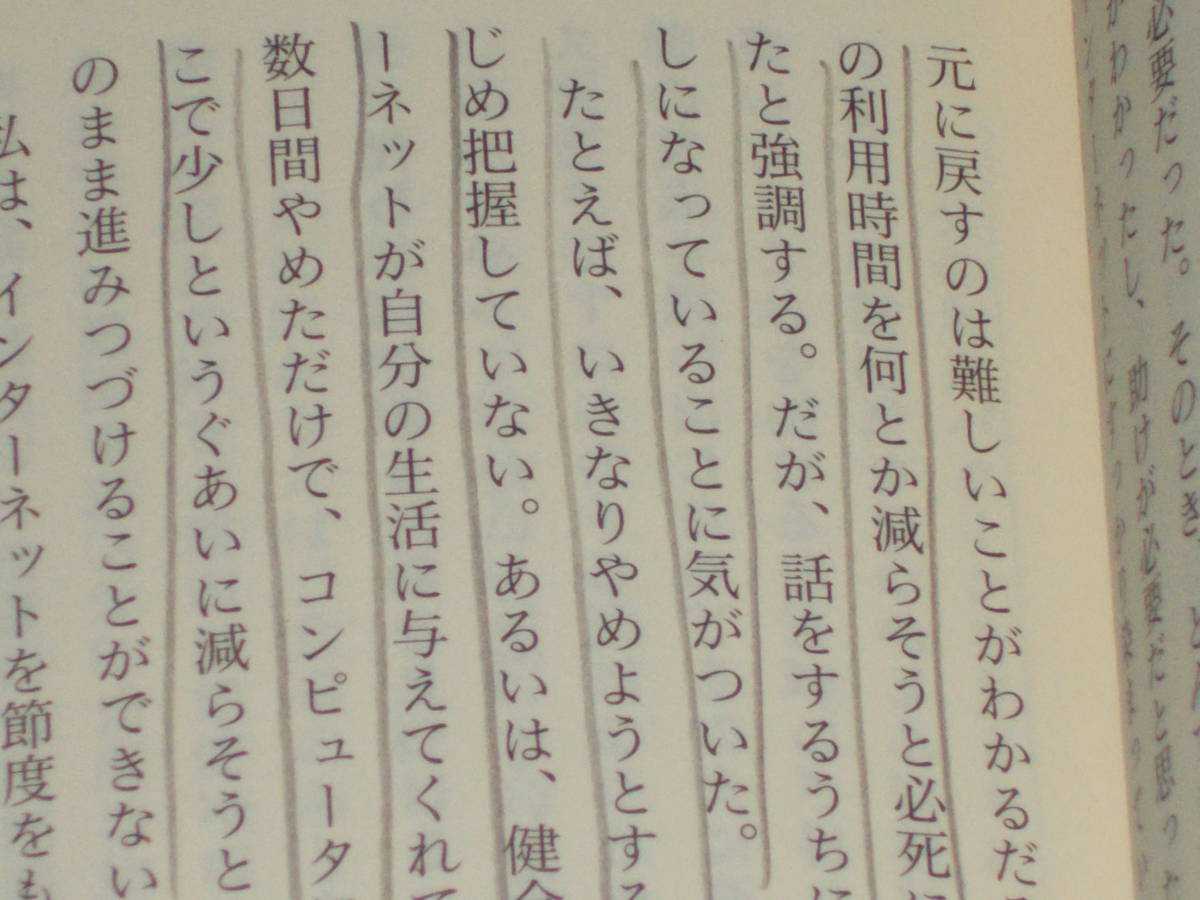 必要だった。そのとき、
がわかったし、助けが必要だと思った
元に戻すのは難しいことがわかるだ
の利用時間を何とか減らそうと必死に
たと強調する。だが、話をするうちに
しになっていることに気がついた。
たとえば、いきなりやめようとする
じめ把握していない。あるいは、健全
ーネットが自分の生活に与えてくれて
数日間やめただけで、コンピュータ
こで少しというぐあいに減らそうと
のまま進みつづけることができない
私は、インターネットを節度をも